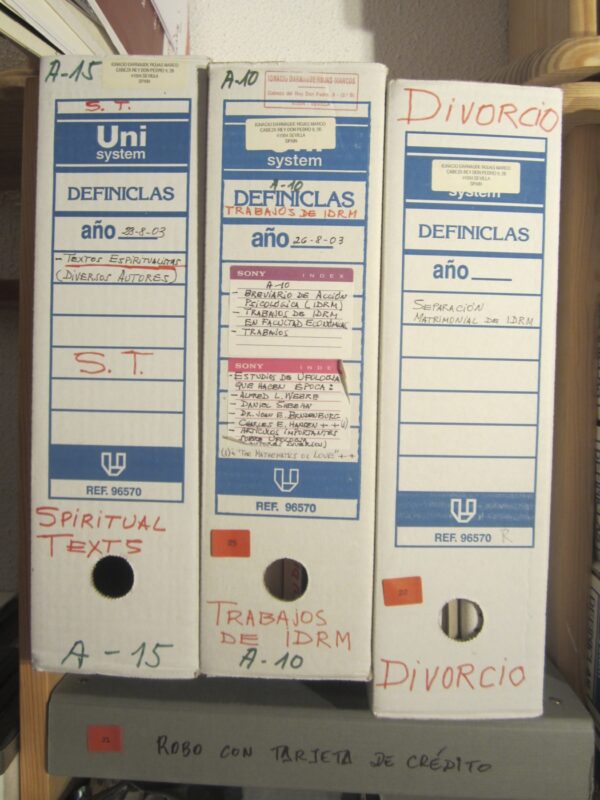 A-15
IGNACIO DARNAUDE ROJAS-MARCO
CABEZA REY DON PEDRO 9, 2B
41004 SEVILLA
SPAIN
S. T.
Uni
system
DEFINICLAS
año 23-8-03
- TEXTOS ESPIRITUALISTAS
(DIVERSOS AUTORES)
S. T.
REF. 96570
SPIRITUAL
TEXTS
A-15
A-10
IGNACIO DARNAUDE ROJAS-MARCOS
Cabeza del Rey Don Pedro, 9
SEVILLA
IGNACIO DARNAUDE ROJAS MARCO
CABEZA REY DON PEDRO 9, 2B
41004 SEVILLA
SPAIN
system
A-10
DEFINICLAS
TRABAJOS DE IDRM
año 26-8-03
SONY INDEX
A-10
- BREVIARIO DE ACCIÓN
PSICOLÓGICA (IDRM)
- TRABAJOS DE IDRM
EN FACULTAD ECONÓMICAS
- TRABAJOS
SONY INDE
- ESTUDIOS DE UFOLOGIA
QUE HACEN EPOCA:
- ALFRED L. WEBRE
- DANIEL SHEEHAN
- DR. JOHN E. BRNDENBURG
- CHARLES E. HANSEN ++(1)
- ARTÍCULOS IMPORTANTES
SOBRE UFOLOGIA
(AUTORES DIVERSOS)
(1) + "THE MATHEMATICS OF LOVE" ++
REF. 96570
25
TRABAJOS
DE IDRM
A-10
DIVORCIO
IGNACIO DARNAUDE ROJAS MARCO
CABEZA REY DON PEDRO 9, 2B
41004 SEVILLA
SPAIN
system
DEFINICLAS
año
SEPARACIÓN
MATRIMONIAL DE IDRM
REF. 96570 R
DIVORCIO
21
ROBO CON TARJETA DE CRÉDITO